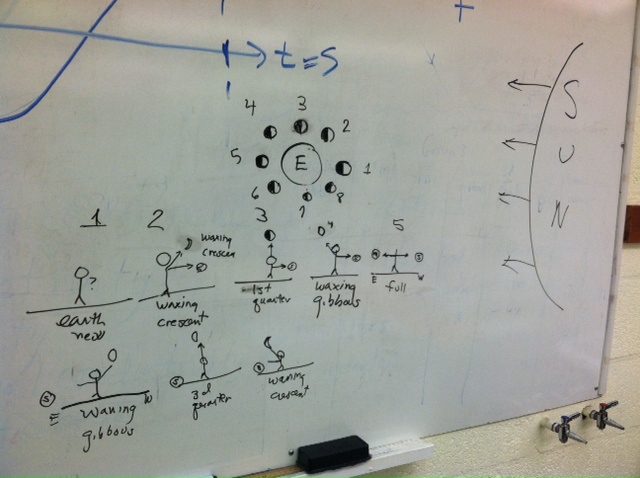 t=s
SUN
3
4
2
5
E
1
6
8
7
1
2
3
4
5
waxing
crescent
?
S
S
S
E
W
earth
new
waxing
crescent
1st
quarter
waxing
gibbous
full
S
E
W
waning
gibbous
S
3d
quarter
S
waning
crescent